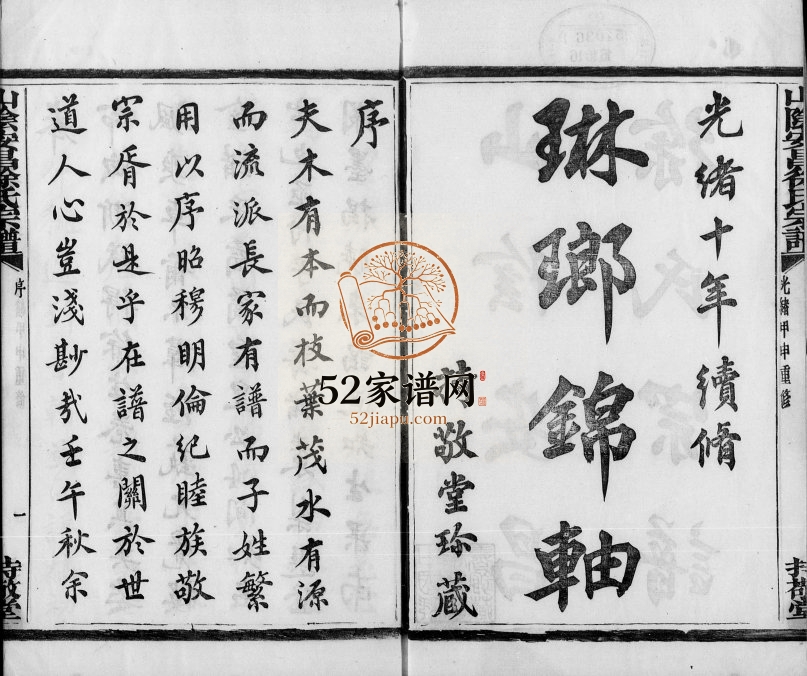 山陰安昌徐氏宗譜
光緒甲申重修
光緒十年續脩
琳瑯錦軸
敬堂珍藏
52家谱网
52jiapu.com
序
夫木有本而枝葉茂水有源
而流派長家有譜而子姓繁
用以序昭穆明倫紀睦族敬
宗胥於是乎在譜之關於世
道人心豈淺尠哉壬午秋余
山陰安昌徐氏宗譜
序
一